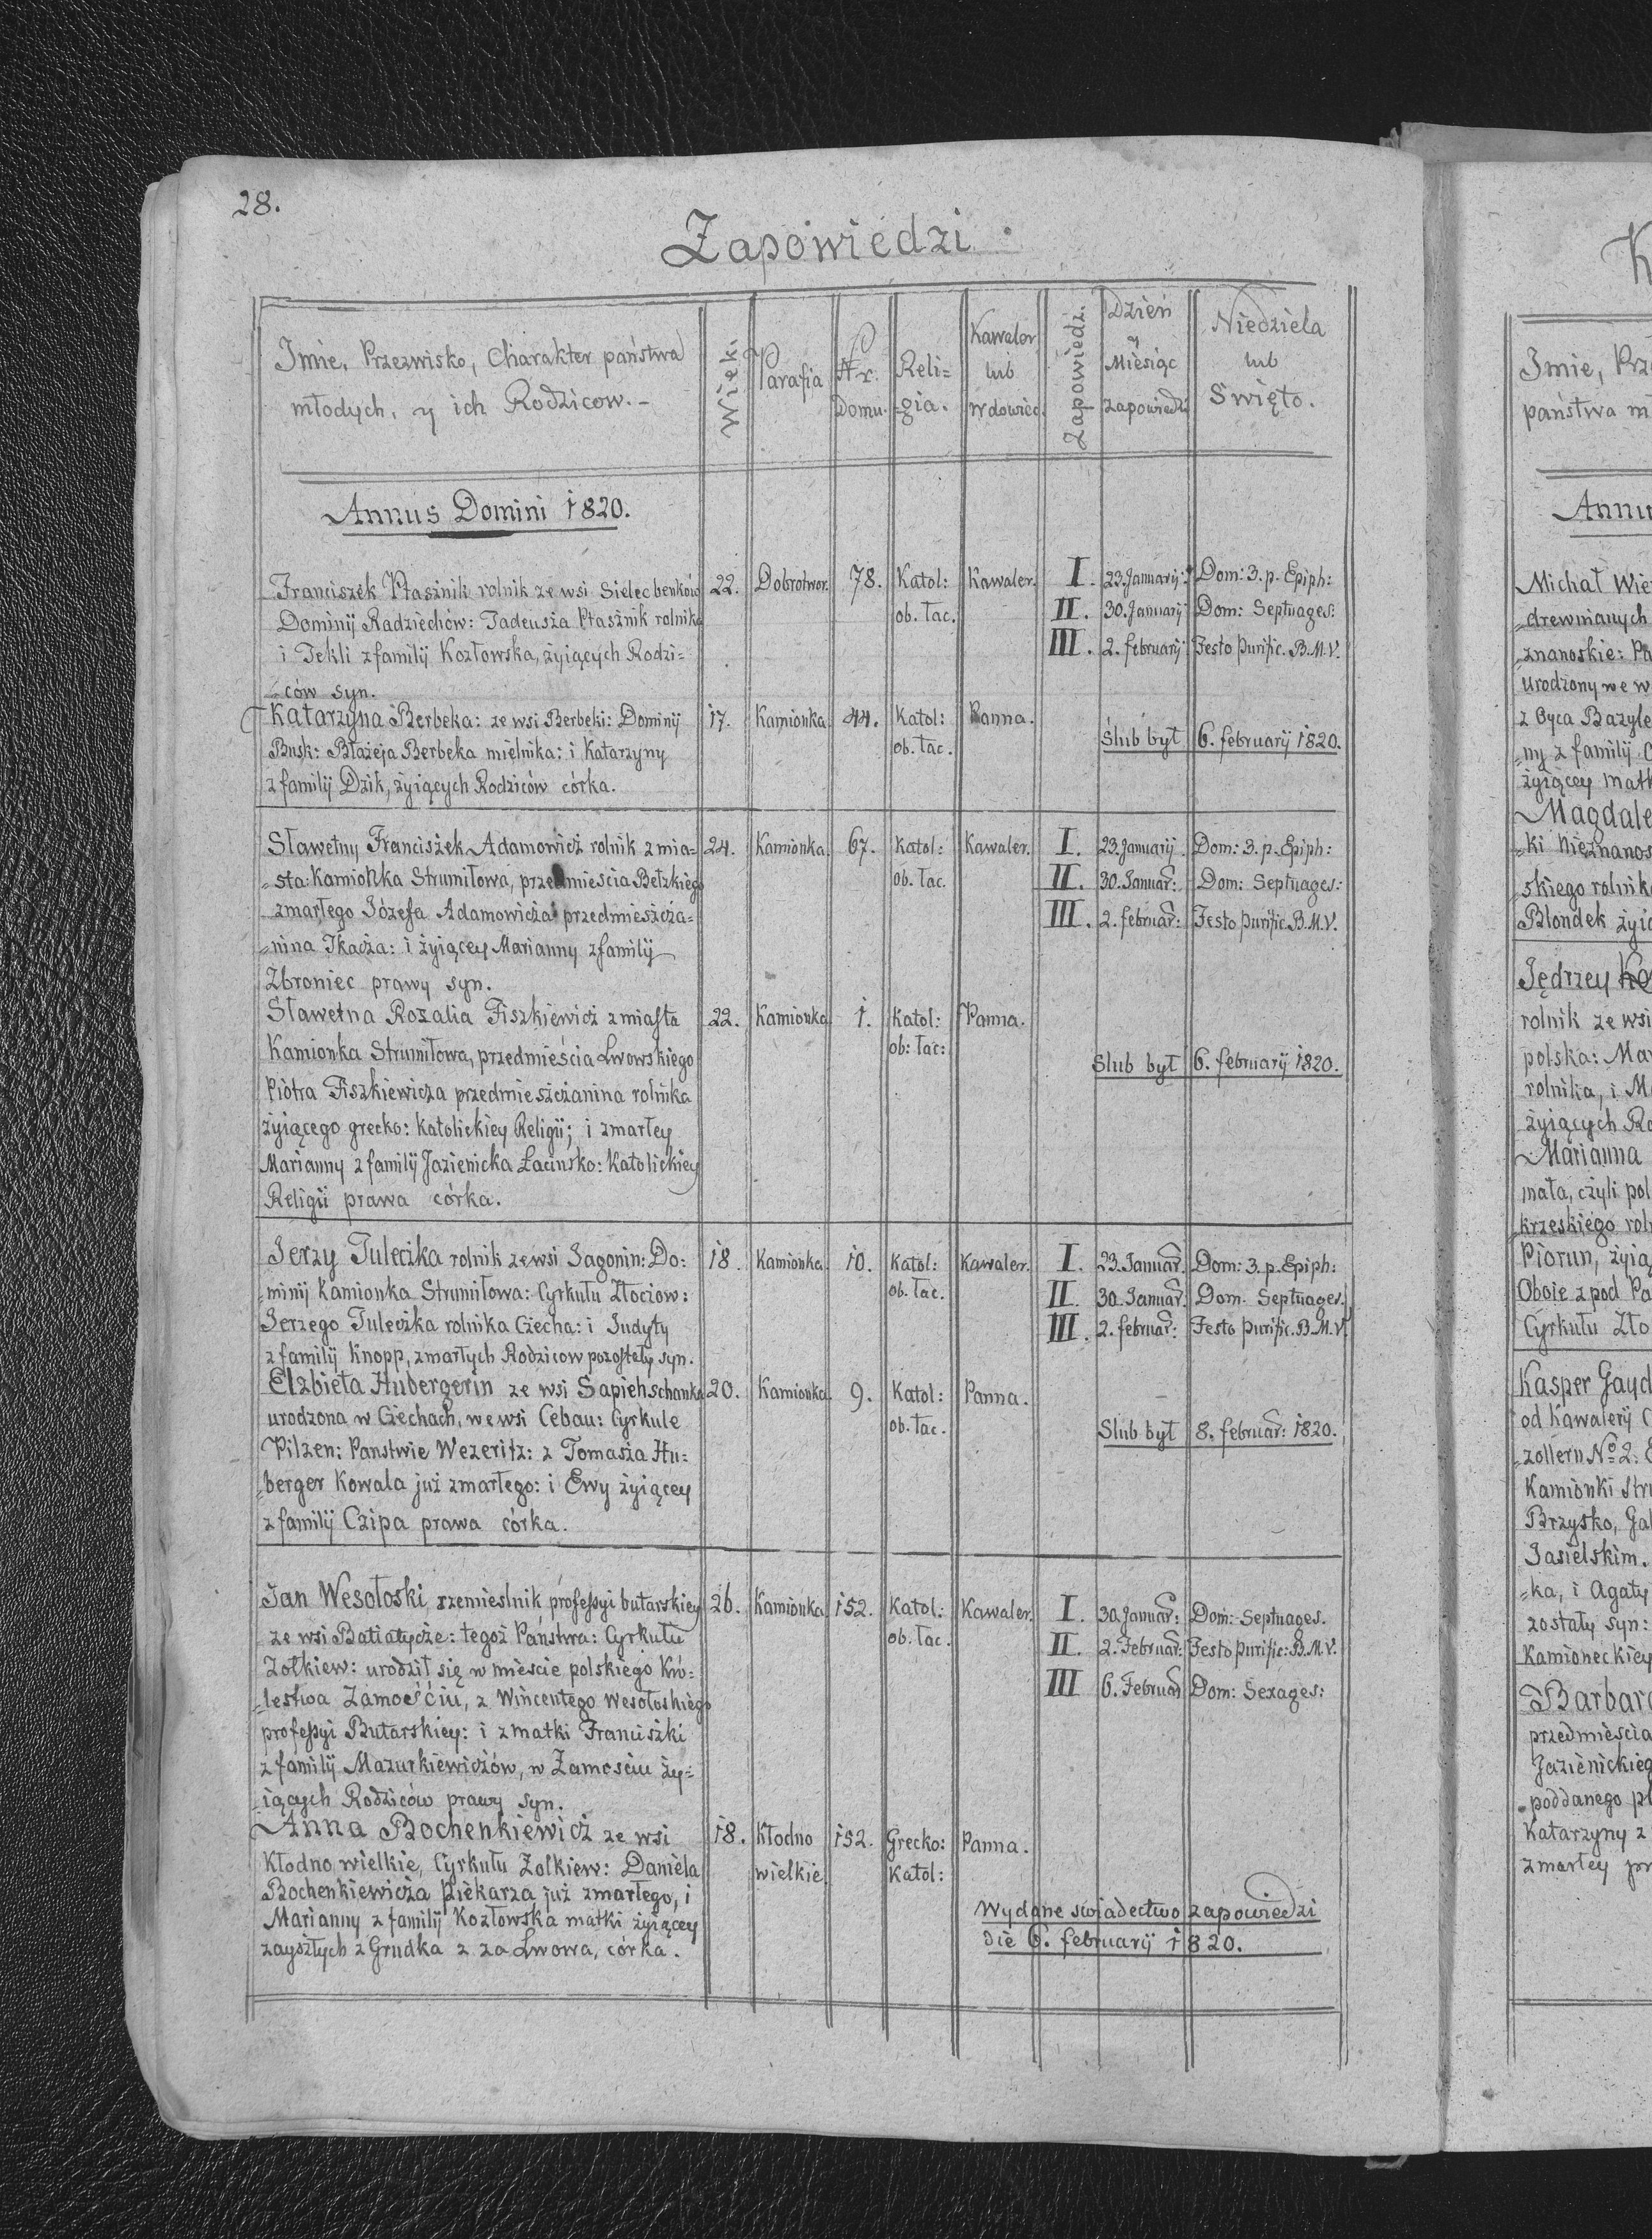 28.
Zapowiedzi.
Imie, Przezwisko, Charakter państwa
młodych, y ich Rodzicow.-
Wiek.
Parafia
Nr.
Domu.
Reli=
gia.
Kawaler
lub
Wdowiec.
Zapowiedz.
Dzień
y
Miesiąc
zapowiedzi
Niedziela
lub
Swięto.
Annus Domini 1820.
Franciszek Ptasznik rolnik ze wsi Sielec benków 22. Dobrotwor. 78. Katol: Kawaler. I. 23. Januarij: Dom: 3. p. Epiph:
Dominij Radziechów: Tadeusza Ptasznik rolnika ob. łac. II. 30. Januarij Dom: Septuages:
i Tekli z familij Kozłowska, żyiących Rodzi= III. 2. februarij Festo Purific. B.M.V.
=ców syn.
Katarzyna Berbeka: ze wsi Berbeki: Dominij 17. Kamionka 44. Katol: Panna.
Busk: Błażeja Berbeka mielnika: i Katarzyny ob. łac. Ślub był 6. februarij 1820.
z familij Dzik, żyiących Rodziców córka.
Sławetny Franciszek Adamowicz rolnik z mia= 24. Kamionka 67. Katol: Kawaler. I. 23. Januarij. Dom: 3. p. Epiph:
=sta: Kamionka Strumiłowa, przedmieścia Bełzkiego ob. łac. II. 30. Januar: Dom: Septuages:
zmarłego Józefa Adamowicza przedmieszcza= III. 2. februar: Festo Purific. B.M.V.
=nina Tkacza: i żyiącey Marianny z familij
Zbroniec prawy syn.
Sławetna Rozalia Fiszkiewicz z miasta 22. Kamionka 1. Katol: Panna.
Kamionka Strumiłowa, przedmieścia Lwowskiego ob: łac:
Piotra Fiszkiewicza przedmieszczanina rolnika Slub był 6. februarij 1820.
żyiącego grecko: Katolickiey Religii; i zmarłey
Marianny z familij Jazienicka Łacinsko: Katolickiey
Religii prawa córka.
Jerzy Tuleczka rolnik ze wsi Jagonin: Do= 18. Kamionka 10. Katol: Kawaler. I. 23. Januar. Dom: 3. p. Epiph:
=minij Kamionka Strumiłowa: Cyrkułu Złociow: ob. łac. II. 30. Januar. Dom. Septuages.
Jerzego Tuleczka rolnika Czecha: i Judyty III. 2. februar: Festo Purific. B.M.V.
z familij Knopp, zmarłych Rodzicow pozostały syn.
Elzbieta Hubergerin ze wsi Sapiehschanka 20. Kamionka 9. Katol: Panna.
urodzona w Czechach, we wsi Cebau: Cyrkule ob. łac. Slub był 8. februar: 1820.
Pilzen: Panstwie Wezeritz: z Tomasza Hu=
=berger Kowala już zmarłego: i Ewy żyiącey
z familij Czipa prawa córka.
Jan Wesołoski rzemieslnik professyi butarskiey 26. Kamionka 152. Katol: Kawaler. I. 30. Januar: Dom: Septuages.
ze wsi Batiatycze: tegoż Państwa: Cyrkułu ob. łac. II. 2. Februar: Festo Purific: B.M.V.
Zołkiew: urodził się w mieście polskiego Kró= III 6. Februar Dom: Sexages:
=lestwa Zamośćiu, z Wincentego Wesołoskiego
professyi Butarskiey: i z matki Franciszki
z familij Mazurkiewiczów, w Zamosciu ży=
iących Rodziców prawy syn.
Anna Bochenkiewicz ze wsi 18. Kłodno 152. Grecko: Panna.
Kłodno wielkie, Cyrkułu Zołkiew: Daniela wielkie. Katol:
Bochenkiewicza Piekarza już zmarłego, i
Marianny z familij Kozłowska matki żyiącey Wydane swiadectwo zapowiedzi
zayszłych z Grudka z za Lwowa, córka. die 6. februarij 1820.
K
Imie, Prze
państwa m
Annu
Michał Wie
=drewnianych
=znanoskie: Pa
urodzony we w
z Oyca Bazyle
=ny z familij C
żyiącey matk
Magdale
=ki Nieznanos
skiego rolnik
Blondek żyią
Jędrzey Ko
rolnik ze wsi
polska: Mar
rolnika, i M
żyiących Ro
Marianna
mała, czyli pol
krzeskiego rol
Piorun, żyią
Oboie z pod Pa
Cyrkułu Zło
Kasper Gayd
od Kawalerij C
=zollern No 2:
Kamionki Stru
Brzysko, Gal
Jasielskim.
=ka, i Agaty
zostały syn:
Kamioneckiey
Barbara
przedmieścia
Jazienickieg
poddanego pł
Katarzyny z
zmarłey pr